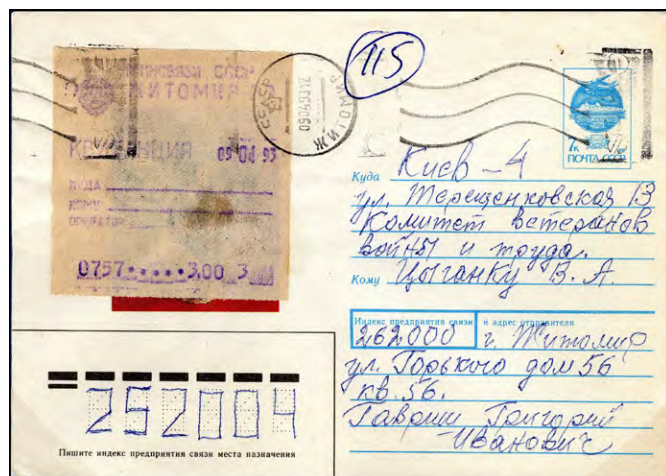 115
МИНСВЯЗИ СССР
ЖИТОМИР
КВИТАНЦИЯ 09 04 93
КУДА
КОМУ
ОПЕРАТОР
0757•••••3,00 3
ЖИТОМИР
090493 12
7к
ПОЧТА СССР
Куда Киев-4
ул. Терещенковская 13
Комитет ветеранов
войны и труда.
Кому Цыганку В. А.
Индекс предприятия связи и адрес отправителя
262000 г. Житомир
ул. Горького дом 56
кв. 56.
Гавриш Григорий
Иванович
252004
Пишите индекс предприятия связи места назначения